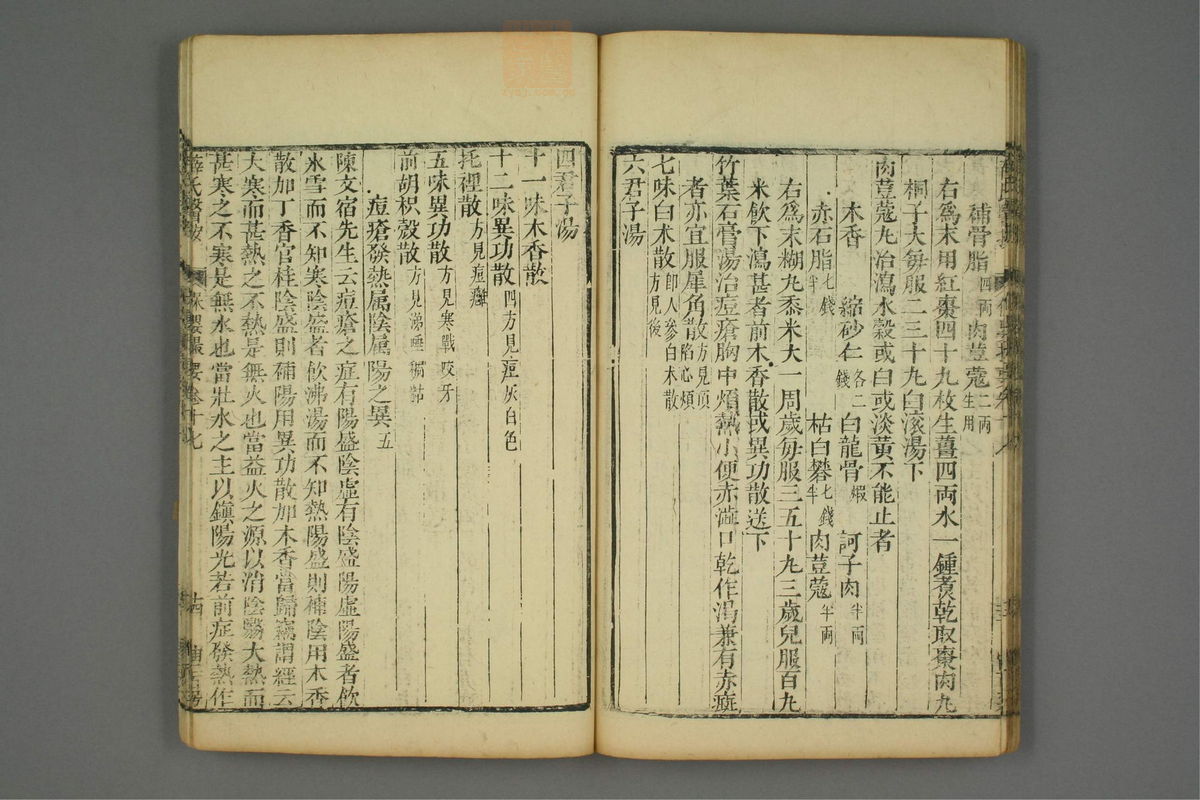 補骨脂四兩 肉荳蔻二兩生用
右爲末用紅棗四十九枚生薑四兩水一鍾煮乾取棗肉丸
桐子大每服二三十丸白滚湯下
肉荳蔻丸治瀉水穀或白或淡黃不能止者
木香 縮砂仁各二錢 白龍骨 訶子肉半兩
赤石脂七錢半 枯白礬七錢半 肉荳蔻半兩
右爲末糊丸黍米大一周歲每服三五十丸三歲兒服百丸
米飲下瀉甚者前木香散或異功散送下
竹葉石膏湯治痘瘡胸中煩熱小便赤澁口乾作渴兼有赤癍
者亦宜服犀角散方見頂陷心煩
七味白术散卽人參白术散方見後
六君子湯
四君子湯
十一味木香散
十二味異功散四方見痘灰白色
托裡散方見痘癰
五味異功散方見寒戰咬牙
前胡枳殼散方見涕唾稠黏
痘瘡發熱屬陰屬陽之異五
陳文宿先生云痘瘡之症有陽盛陰虛有陰盛陽虛陽盛者飲
氷雪而不知寒陰盛者飲沸湯而不知熱陽盛則補陰用木香
散加丁香官桂陰盛則補陽用異功散加木香當歸竊謂經云
大寒而甚熱之不熱是無火也當益火之源以消陰翳大熱而
甚寒之不寒是無水也當壯水之主以鎮陽光若前症發熱作
薛氏醫按 保嬰撮要卷十七 十四